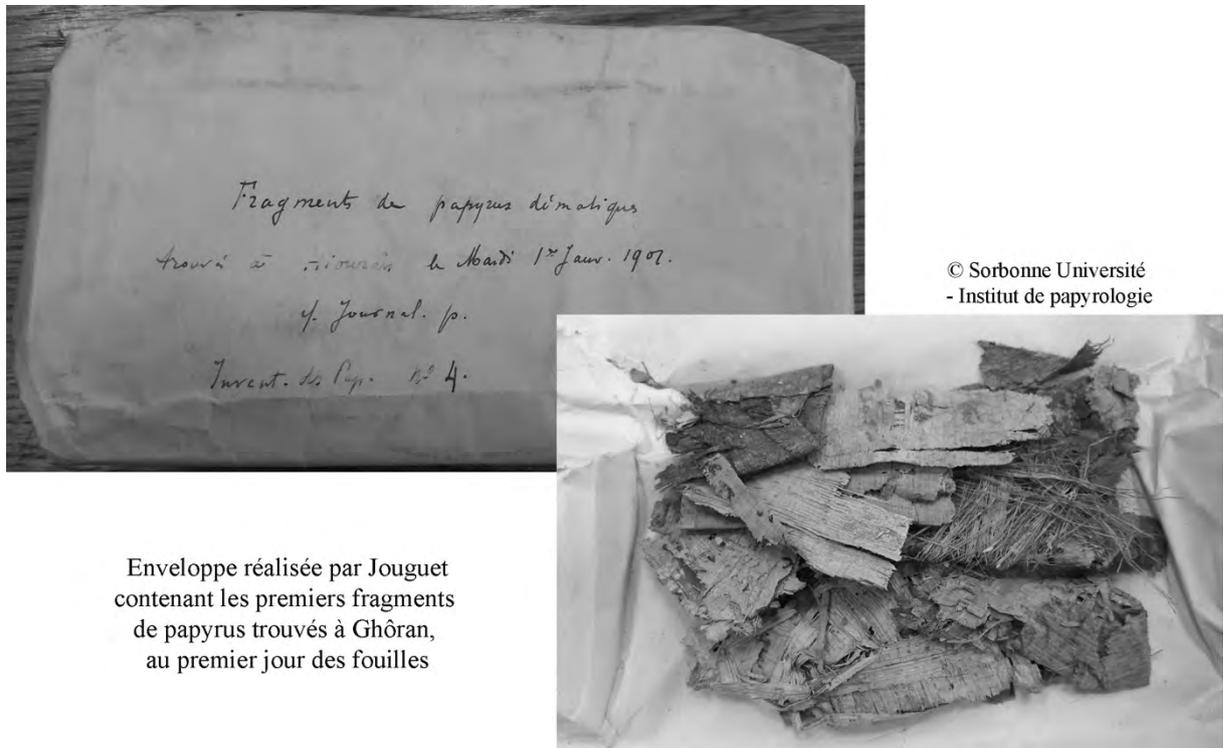 Fragments de papyrus démotiques
trouvés à le Mardi 1er Janv. 1901.
cf. Journal. p.
Invent. des Pap. No 4.
© Sorbonne Université
- Institut de papyrologie
Enveloppe réalisée par Jouguet
contenant les premiers fragments
de papyrus trouvés à Ghôran,
au premier jour des fouilles